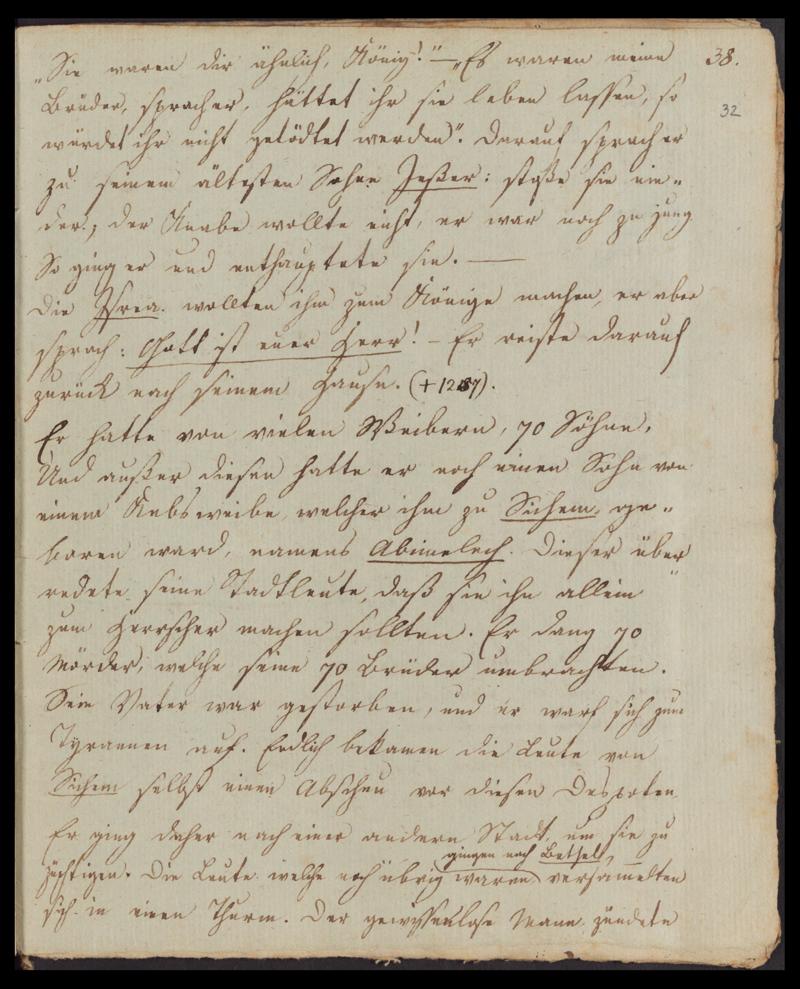 „Sie waren dir ähnlich, König!" — „Es waren meine 38.
Brüder, sprach er, hättet ihr sie leben lassen, so 32
würdet ihr nicht getödtet werden". Darauf sprach er
zu seinem ältesten Sohne Jeßer: stoße sie nie-
der; der Knabe wollte nicht, er war noch zu jung
So ging er und enthauptete sie. —
Die Isrea. wollten ihn zum Könige machen, er aber
sprach: Gott ist euer Herr! — Er reiste darauf
zurück nach seinem Hause. (+ 1237).
Er hatte von vielen Weibern, 70 Söhne,
Und außer diesen hatte er noch einen Sohn von
einem Kebsweibe, welcher ihm zu Sichem ge-
boren ward, namens Abimelech. Dieser über
redete seine Stadtleute, daß sie ihn allein
zum Herrscher machen sollten. Er dang 70
Mörder, welche seine 70 Brüder umbrachten.
Sein Vater war gestorben, und er warf sich zum
Tyrannen auf. Endlich bekamen die Leute von
Sichem selbst einen Abscheu vor diesen Despoten
Er ging daher nach einer andern Stadt, um sie zu
gingen nach Bethsel,
züchtigen. Die Leute welche noch übrig waren versamelten
sich in einen Thurm. Der gewissenlose Mann zündete